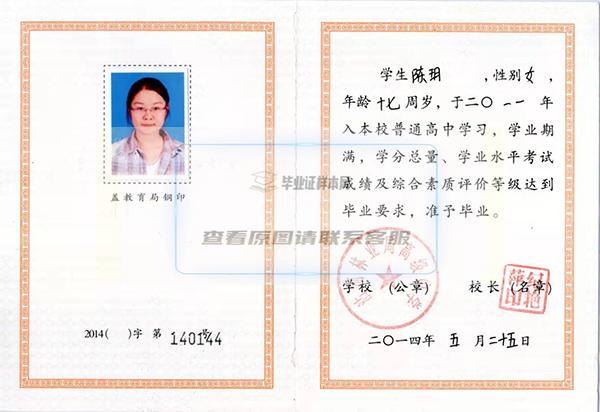 盖教育局钢印
2014( )字 第 140144 号
学生 陈玥 ,性别 女 ,
年龄 十七 周岁, 于二〇一一年
入本校普通高中学习, 学业期
满, 学分总量、学业水平考试
成绩及综合素质评价等级达到
毕业要求, 准予毕业。
学校 (公章) 校长 (名章)
二〇一四年 五 月 二十五日
毕业证样本网
查看原图请联系客服